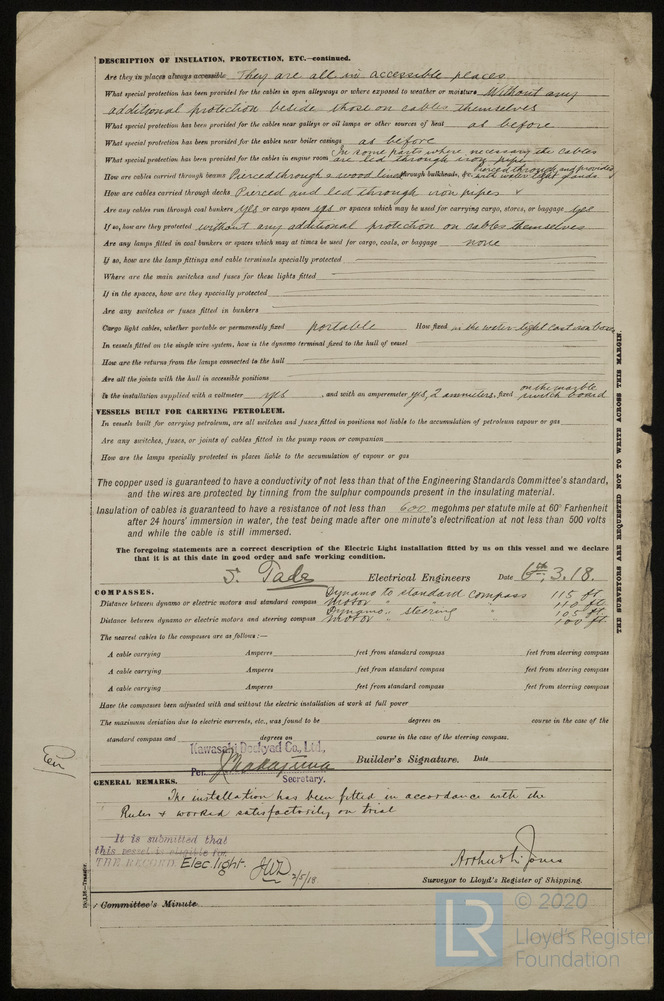 DESCRIPTION OF INSULATION, PROTECTION, ETC.—continued.
Are they in places always accessible They are all in accessible places
What special protection has been provided for the cables in open alleyways or where exposed to weather or moisture Without any
additional protection beside those on cables themselves
What special protection has been provided for the cables near galleys or oil lamps or other sources of heat as before
What special protection has been provided for the cables near boiler casings as before
What special protection has been provided for the cables in engine room In some parts where necessary the cables are led through iron pipe
How are cables carried through beams Pierced through & wood lined through bulkheads, &c. Pierced through and provided with water-tight glands.
How are cables carried through decks Pierced and led through iron pipes
Are any cables run through coal bunkers yes or cargo spaces yes or spaces which may be used for carrying cargo, stores, or baggage yes
If so, how are they protected without any additional protection on cables themselves
Are any lamps fitted in coal bunkers or spaces which may at times be used for cargo, coals, or baggage none
If so, how are the lamp fittings and cable terminals specially protected
Where are the main switches and fuses for these lights fitted
If in the spaces, how are they specially protected
Are any switches or fuses fitted in bunkers
Cargo light cables, whether portable or permanently fixed portable How fixed in the water-tight cast iron boxes
In vessels fitted on the single wire system, how is the dynamo terminal fixed to the hull of vessel
How are the returns from the lamps connected to the hull
Are all the joints with the hull in accessible positions
Is the installation supplied with a voltmeter yes, and with an amperemeter yes, 2 ammeters, fixed on the marble switch board
VESSELS BUILT FOR CARRYING PETROLEUM.
In vessels built for carrying petroleum, are all switches and fuses fitted in positions not liable to the accumulation of petroleum vapour or gas
Are any switches, fuses, or joints of cables fitted in the pump room or companion
How are the lamps specially protected in places liable to the accumulation of vapour or gas
The copper used is guaranteed to have a conductivity of not less than that of the Engineering Standards Committee's standard,
and the wires are protected by tinning from the sulphur compounds present in the insulating material.
Insulation of cables is guaranteed to have a resistance of not less than 600 megohms per statute mile at 60° Farhenheit
after 24 hours' immersion in water, the test being made after one minute's electrification at not less than 500 volts
and while the cable is still immersed.
The foregoing statements are a correct description of the Electric Light installation fitted by us on this vessel and we declare
that it is at this date in good order and safe working condition.
S. Tade Electrical Engineers Date 6th, 3. 18.
COMPASSES.
Dynamo to standard compass 115 ft
Distance between dynamo or electric motors and standard compass Motor " " " 110 ft
Dynamo " steering " 105 ft
Distance between dynamo or electric motors and steering compass Motor " " " 100 ft.
The nearest cables to the compasses are as follows:—
A cable carrying Amperes feet from standard compass feet from steering compass
A cable carrying Amperes feet from standard compass feet from steering compass
A cable carrying Amperes feet from standard compass feet from steering compass
Have the compasses been adjusted with and without the electric installation at work at full power
The maximum deviation due to electric currents, etc., was found to be degrees on course in the case of the
standard compass and degrees on course in the case of the steering compass.
Kawasaki Dockyard Co., Ltd.,
Per. Builder's Signature. Date
Secretary.
GENERAL REMARKS.
The installation has been fitted in accordance with the
Rules & worked satisfactorily on trial
It is submitted that
this vessel is eligible for
THE RECORD. Elec. light. JWD 2/5/18
Arthur L. Jones
Surveyor to Lloyd's Register of Shipping.
Committee's Minute
THE SURVEYORS ARE REQUESTED NOT TO WRITE ACROSS THIS MARGIN.
© 2020
LR
Lloyd's Register
Foundation